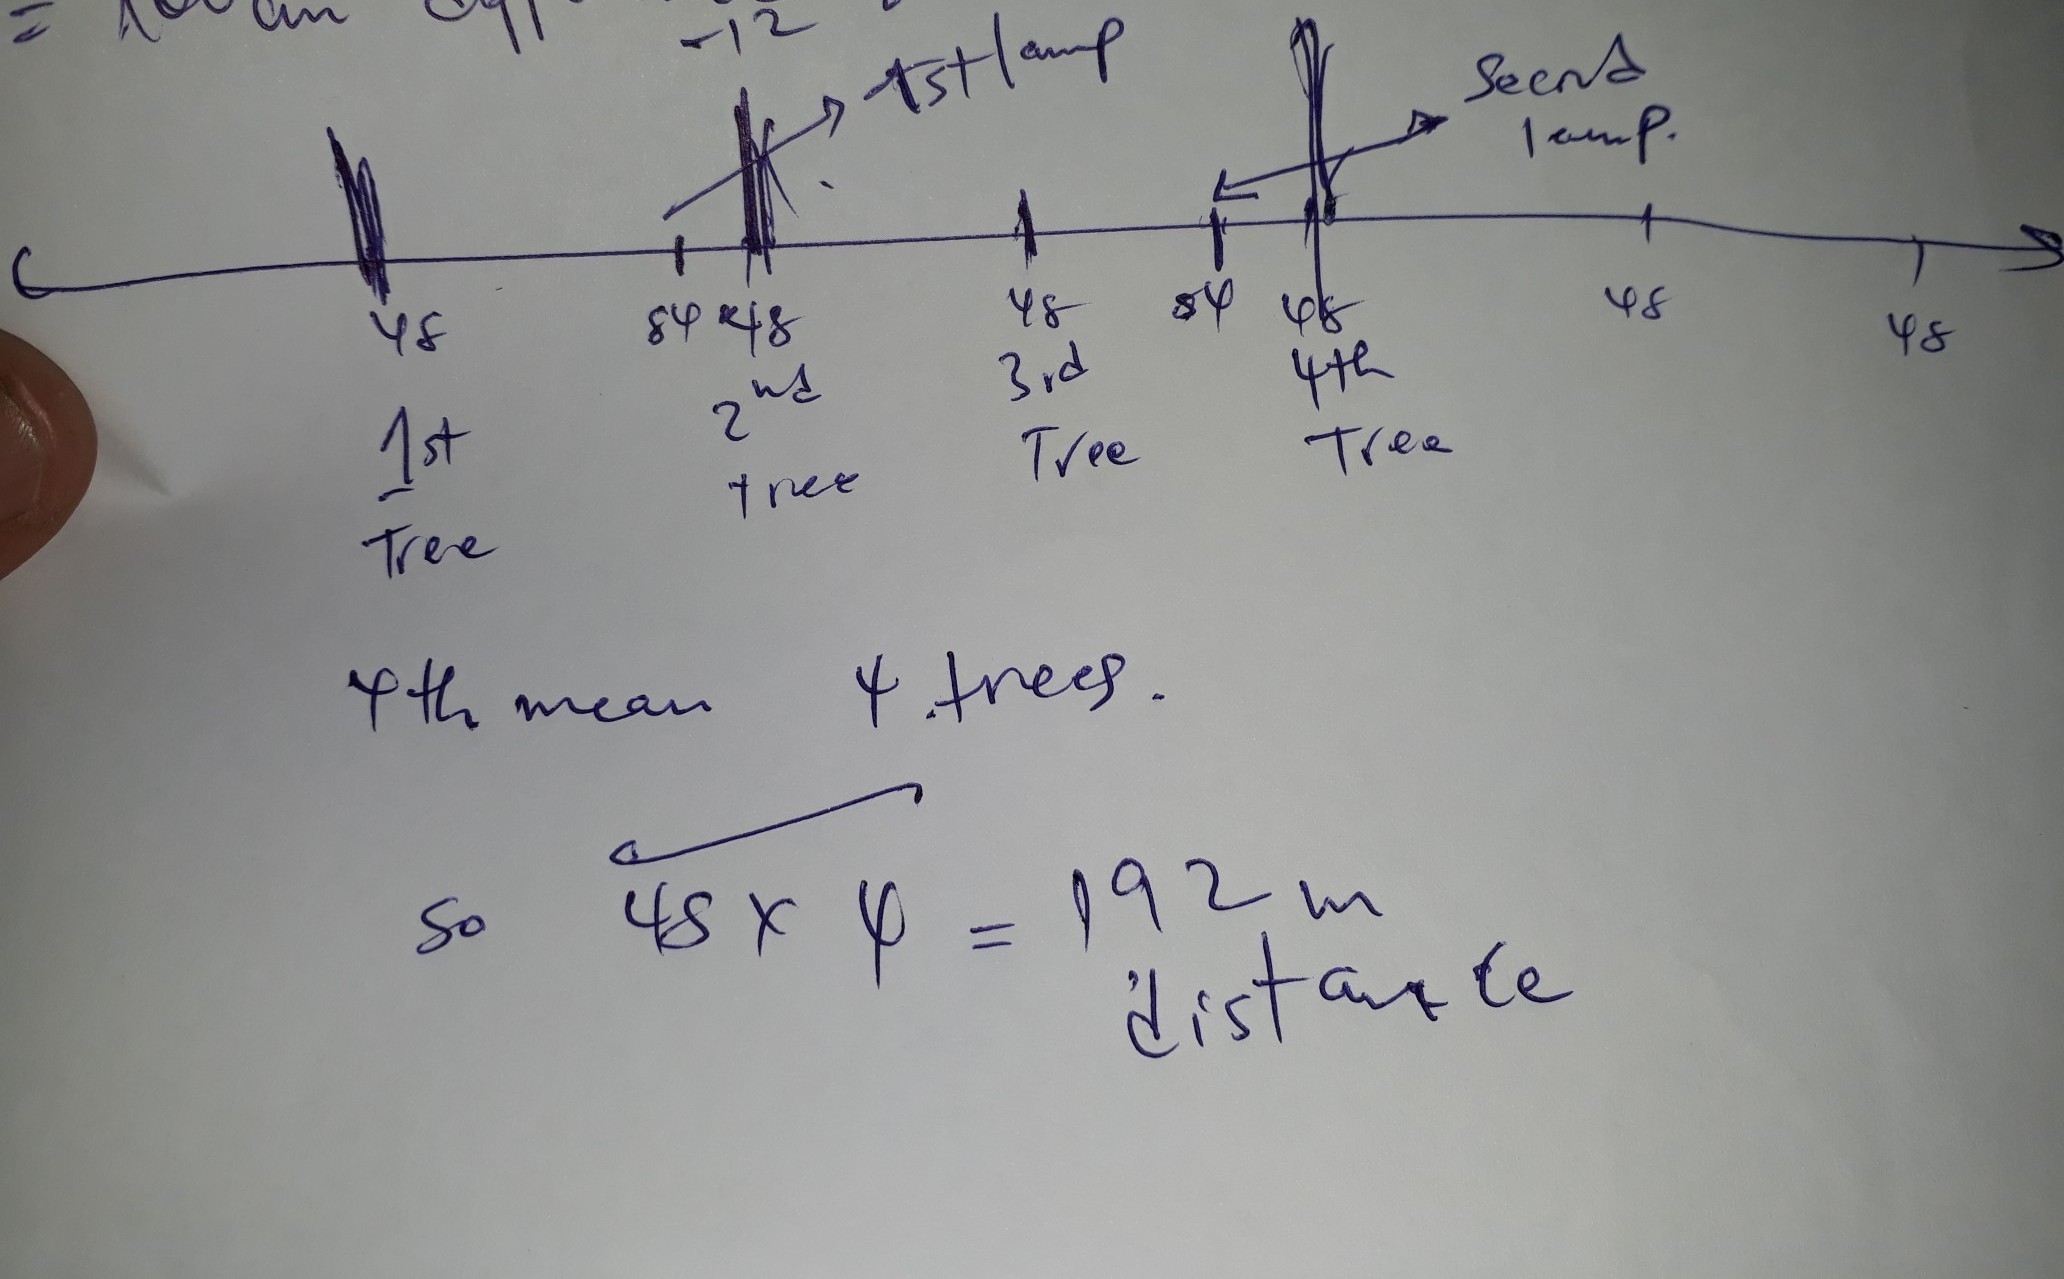 =
-12
1st lamp
Second
lamp.
48 84 48 48 84 48 48 48
1st
Tree
2nd
tree
3rd
Tree
4th
Tree
4th mean 4 trees.
so 48 x 4 = 192 m
distance